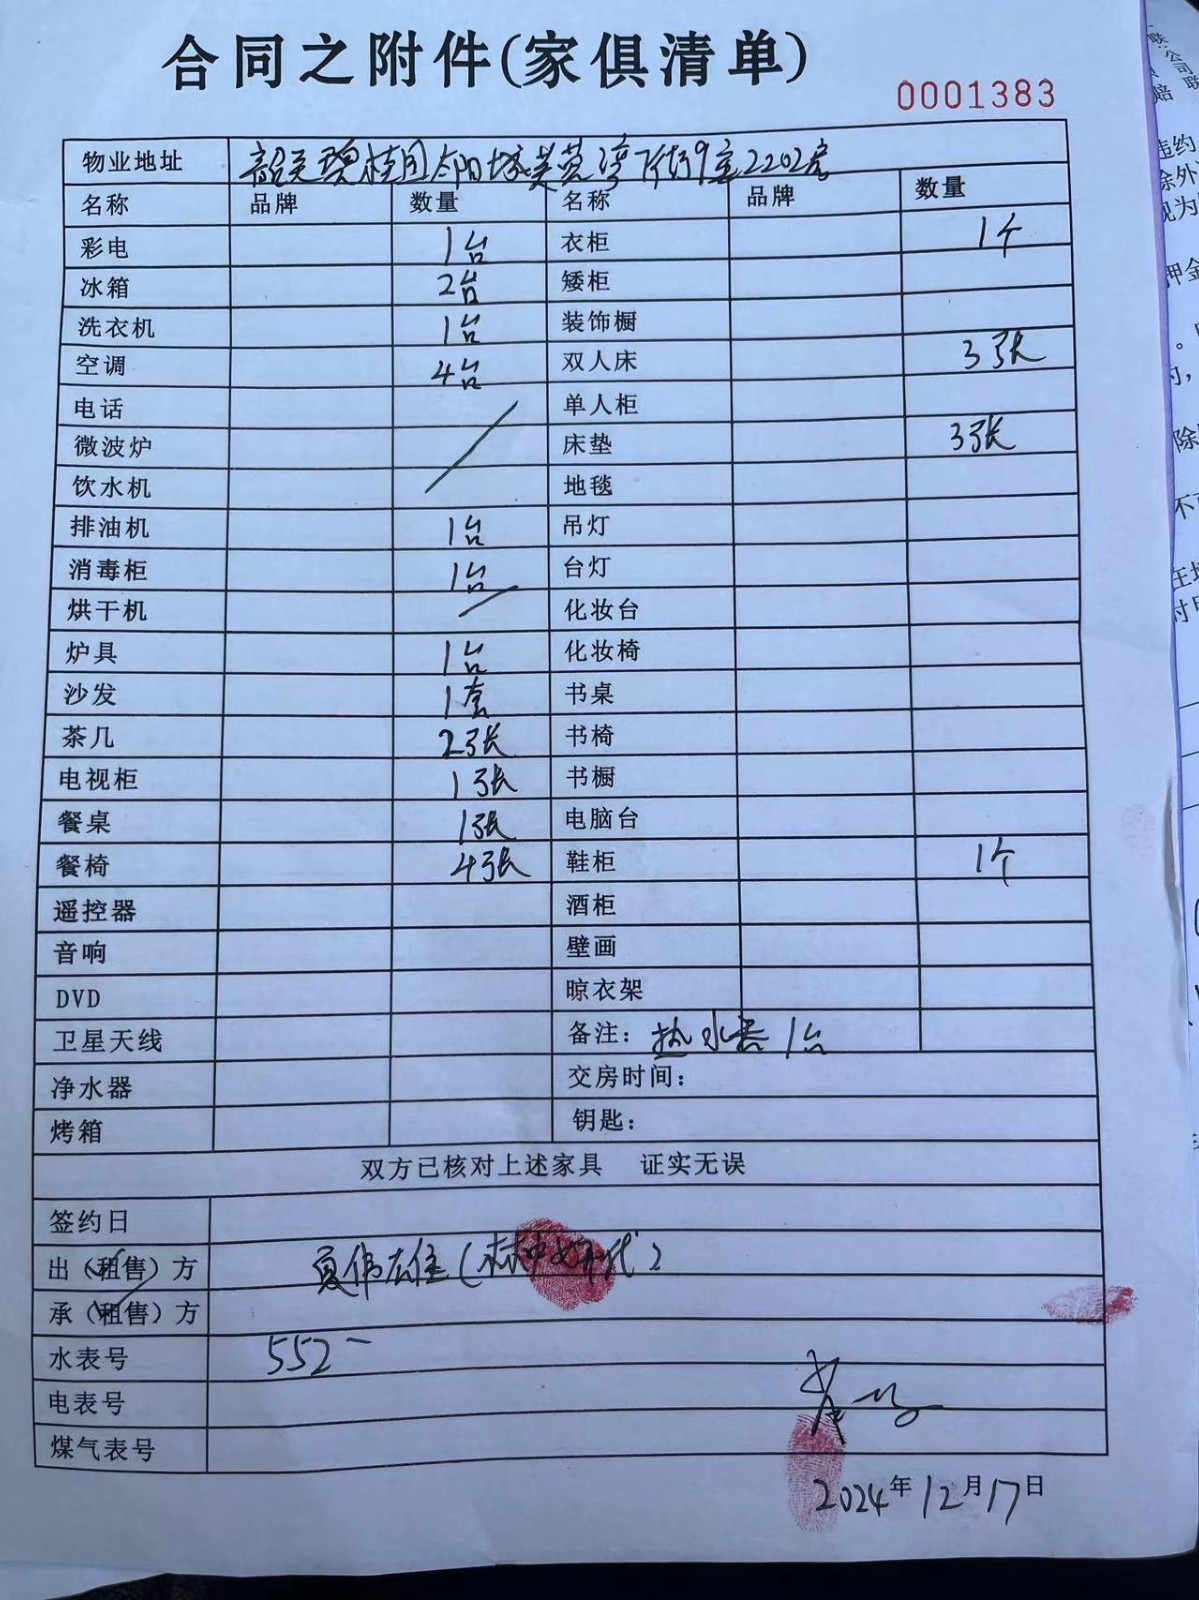 合同之附件(家俱清单)
0001383
物业地址 韶关碧桂园太阳城芙蓉湾 街9座2202房
名称 品牌 数量 名称 品牌 数量
彩电 1台 衣柜 1个
冰箱 2台 矮柜
洗衣机 1台 装饰橱
空调 4台 双人床 3张
电话 单人柜
微波炉 床垫 3张
饮水机 地毯
排油机 1台 吊灯
消毒柜 1台 台灯
烘干机 化妆台
炉具 1台 化妆椅
沙发 1套 书桌
茶几 2张 书椅
电视柜 1张 书橱
餐桌 1张 电脑台
餐椅 4张 鞋柜 1个
遥控器 酒柜
音响 壁画
DVD 晾衣架
卫星天线 备注：热水器1台
净水器 交房时间：
烤箱 钥匙：
双方已核对上述家具 证实无误
签约日
出（租售）方 夏伟雄(林 代)
承（租售）方
水表号 552
电表号
煤气表号
2024年12月17日
联
公司
联
赔
违约
除外
视为
押金
除
不